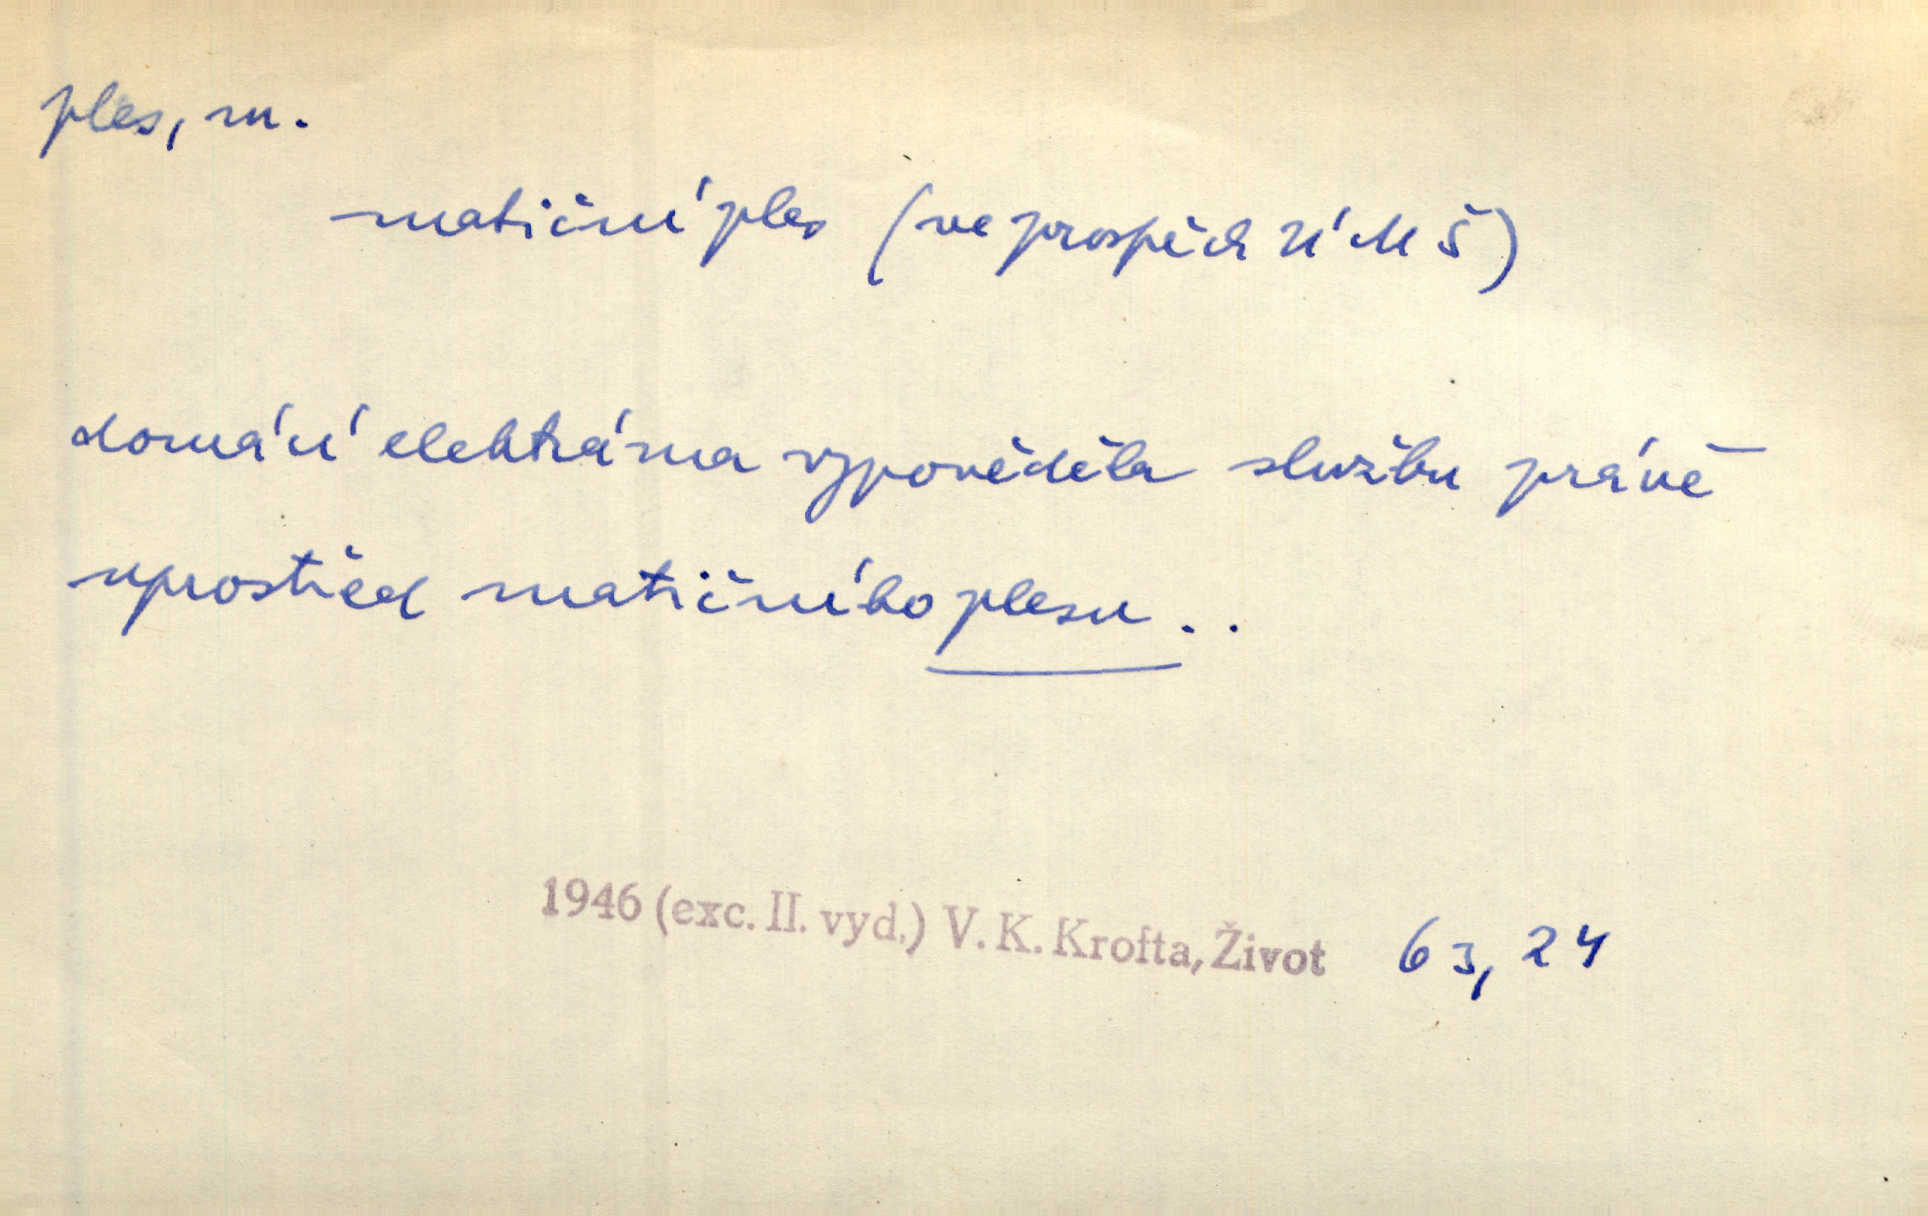 ples, m.
matiční ples (ve prospěch ÚMŠ)
domácí elektrárna vypověděla službu právě
uprostřed matičního plesu..
1946 (exc. II. vyd.) V. K. Krofta, Život 63, 24